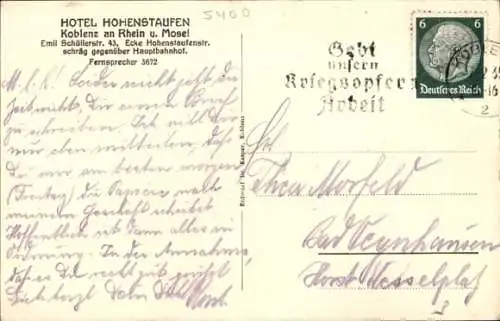 HOTEL HOHENSTAUFEN
Koblenz an Rhein u. Mosel
Emil Schüllerstr. 43, Ecke Hohenstaufenstr.
schräg gegenüber Hauptbahnhof.
Fernsprecher 3672
5400
Gebt
unsern
Kriegsopfern
Arbeit
6 6
Deutsches Reich
M. l. K! Leider nicht geht die
Zeit nicht, Dir einen Brief
zu schreiben. Ich will Dir
nur eben mitteilen, daß Du
mir am besten morgen
(Freitag) die Papiere nach
meinem Geschäft schickst
Hoffentlich ist dann alles in
Ordnung. In der Annahme,
daß es Dir recht gut geht
Dein
Thea Morfeld
Bad Oeynhausen
Horst Wesselplatz